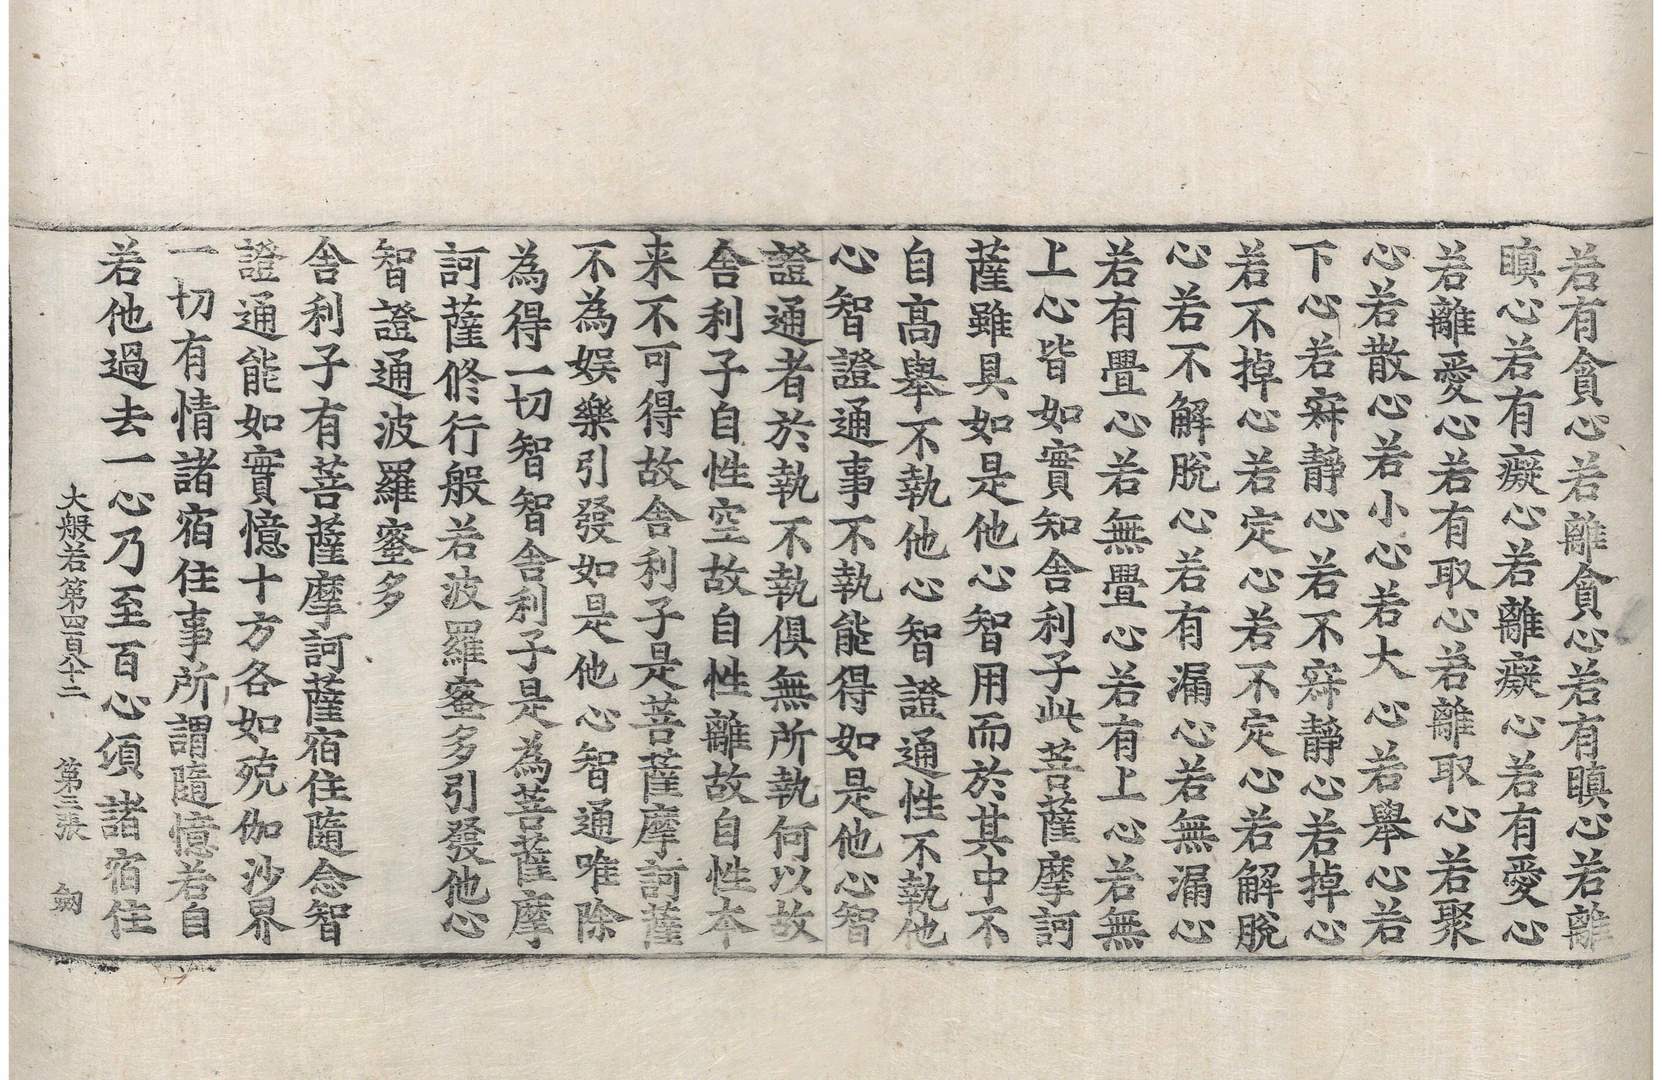 若有貪心若離貪心若有瞋心若離
瞋心若有癡心若離癡心若有愛心
若離愛心若有取心若離取心若聚
心若散心若小心若大心若舉心若
下心若寂靜心若不寂靜心若掉心
若不掉心若定心若不定心若解脫
心若不解脫心若有漏心若無漏心
若有疊心若無疊心若有上心若無
上心皆如實知舎利子此菩薩摩訶
薩雖具如是他心智用而於其中不
自高舉不執他心智證通性不執他
心智證通事不執能得如是他心智
證通者於執不執俱無所執何以故
舎利子自性空故自性離故自性本
来不可得故舎利子是菩薩摩訶薩
不為娯樂引發如是他心智通唯除
為得一切智智舎利子是為菩薩摩
訶薩修行般若波羅蜜多引發他心
智證通波羅蜜多
舎利子有菩薩摩訶薩宿住隨念智
證通能如實憶十方各如殑伽沙界
一切有情諸宿住事所謂隨憶若自
若他過去一心乃至百心頃諸宿住
大般若第四百八十二 第三張 劒